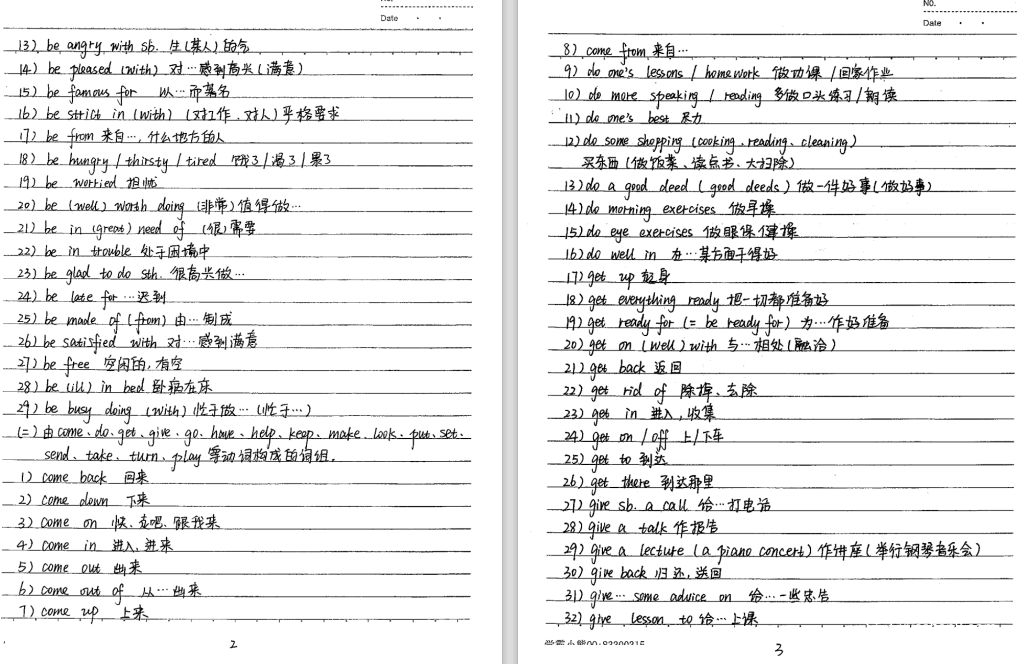 Date
13) be angry with sb. 生(某人)的气
14) be pleased (with) 对…感到高兴(满意)
15) be famous for 以…而著名
16) be strict in (with) (对工作、对人)严格要求
17) be from 来自…,什么地方的人
18) be hungry / thirsty / tired 饿了/渴了/累了
19) be worried 担忧
20) be (well) worth doing (非常)值得做…
21) be in (great) need of (很)需要
22) be in trouble 处于困境中
23) be glad to do sth. 很高兴做…
24) be late for … 迟到
25) be made of (from) 由…制成
26) be satisfied with 对…感到满意
27) be free 空闲的,有空
28) be (ill) in bed 卧病在床
29) be busy doing (with) 忙于做…(忙于…)
(二) 由 come、do、get、give、go、have、help、keep、make、look、put、set、
send、take、turn、play 等动词构成的词组.
1) come back 回来
2) come down 下来
3) come on 快、走吧、跟我来
4) come in 进入,进来
5) come out 出来
6) come out of 从…出来
7) come up 上来
2
No.
Date
8) come from 来自…
9) do one's lessons / homework 做功课/回家作业
10) do more speaking / reading 多做口头练习/朗读
11) do one's best 尽力
12) do some shopping (cooking、reading、cleaning)
买东西(做饭菜、读点书、大扫除)
13) do a good deed (good deeds) 做一件好事(做好事)
14) do morning exercises 做早操
15) do eye exercises 做眼保健操
16) do well in 在…某方面干得好
17) get up 起身
18) get everything ready 把一切都准备好
19) get ready for (= be ready for) 为…作好准备
20) get on (well) with 与…相处(融洽)
21) get back 返回
22) get rid of 除掉、去除
23) get in 进入,收集
24) get on / off 上/下车
25) get to 到达
26) get there 到达那里
27) give sb. a call 给…打电话
28) give a talk 作报告
29) give a lecture (a piano concert) 作讲座(举行钢琴音乐会)
30) give back 归还,送回
31) give… some advice on 给…一些忠告
32) give lesson to 给…上课
3